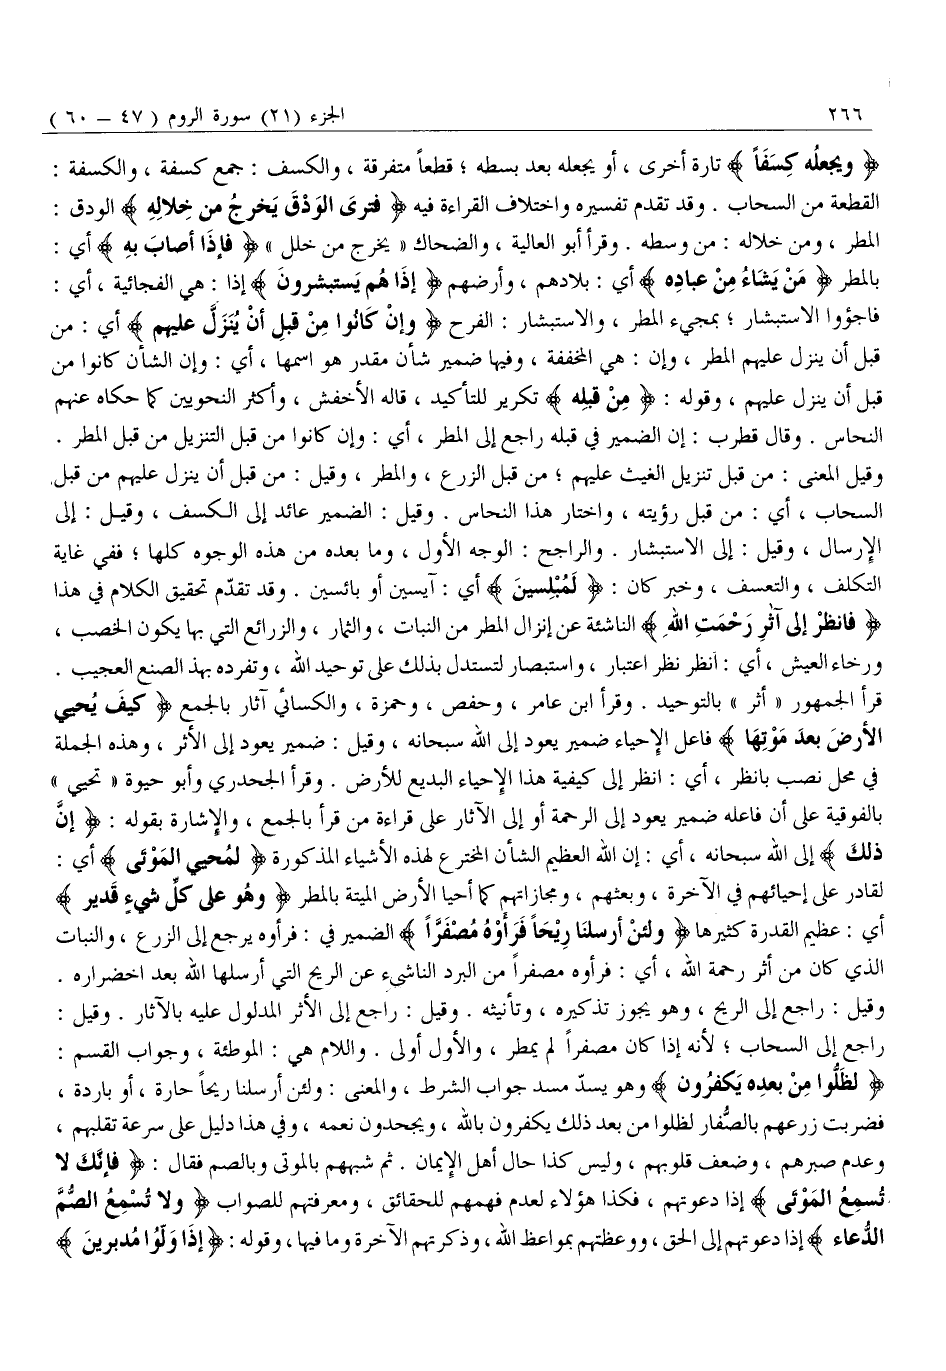 ٢٦٦ الجزء (٢١) سورة الروم ( ٤٧ – ٦٠ )
﴿ ويجعلُه كِسَفَاً ﴾ تارة أخرى ، أو يجعله بعد بسطه ؛ قطعاً متفرقة ، والكسف : جمع كسفة ، والكسفة :
القطعة من السحاب . وقد تقدم تفسيره واختلاف القراءة فيه ﴿ فترى الوَدْقَ يَخرجُ من خلالِهِ ﴾ الودق :
المطر ، ومن خلاله : من وسطه . وقرأ أبو العالية ، والضحاك « يخرج من خلل » ﴿ فإذَا أصابَ بهِ ﴾ أي :
بالمطر ﴿ مَنْ يَشَاءُ مِنْ عبادِه ﴾ أي : بلادهم ، وأرضهم ﴿ إذَا هُم يَستبشرونَ ﴾ إذا : هي الفجائية ، أي :
فاجؤوا الاستبشار ؛ بمجيء المطر ، والاستبشار : الفرح ﴿ وإنْ كَانُوا مِنْ قبلِ أنْ يُنَزَّلَ عليهم ﴾ أي : من
قبل أن ينزل عليهم المطر ، وإن : هي المخففة ، وفيها ضمير شأن مقدر هو اسمها ، أي : وإن الشأن كانوا من
قبل أن ينزل عليهم ، وقوله : ﴿ مِنْ قبلِه ﴾ تكرير للتأكيد ، قاله الأخفش ، وأكثر النحويين كما حكاه عنهم
النحاس . وقال قطرب : إن الضمير في قبله راجع إلى المطر ، أي : وإن كانوا من قبل التنزيل من قبل المطر .
وقيل المعنى : من قبل تنزيل الغيث عليهم ؛ من قبل الزرع ، والمطر ، وقيل : من قبل أن ينزل عليهم من قبل
السحاب ، أي : من قبل رؤيته ، واختار هذا النحاس . وقيل : الضمير عائد إلى الكسف ، وقيل : إلى
الإرسال ، وقيل : إلى الاستبشار . والراجح : الوجه الأول ، وما بعده من هذه الوجوه كلها ؛ ففي غاية
التكلف ، والتعسف ، وخبر كان : ﴿ لَمُبْلِسينَ ﴾ أي : آيسين أو بائسين . وقد تقدّم تحقيق الكلام في هذا
﴿ فانظرْ إلى آثَرِ رَحْمَتِ اللهِ ﴾ الناشئة عن إنزال المطر من النبات ، والثمار ، والزرائع التي بها يكون الخصب ،
ورخاء العيش ، أي : أنظر نظر اعتبار ، واستبصار لتستدل بذلك على توحيد الله ، وتفرده بهذ الصنع العجيب .
قرأ الجمهور « أثر » بالتوحيد . وقرأ ابن عامر ، وحفص ، وحمزة ، والكسائي آثار بالجمع ﴿ كيفَ يُحيي
الأرضَ بعدَ مَوْتِهَا ﴾ فاعل الإحياء ضمير يعود إلى الله سبحانه ، وقيل : ضمير يعود إلى الأثر ، وهذه الجملة
في محل نصب بانظر ، أي : انظر إلى كيفية هذا الإحياء البديع للأرض . وقرأ الجحدري وأبو حيوة « تحيي »
بالفوقية على أن فاعله ضمير يعود إلى الرحمة أو إلى الآثار على قراءة من قرأ بالجمع ، والإشارة بقوله : ﴿ إنَّ
ذلكَ ﴾ إلى الله سبحانه ، أي : إن الله العظيم الشأن المخترع لهذه الأشياء المذكورة ﴿ لمُحيي المَوْتَى ﴾ أي :
لقادر على إحيائهم في الآخرة ، وبعثهم ، ومجازاتهم كما أحيا الأرض الميتة بالمطر ﴿ وهُو على كلِّ شيءٍ قَدير ﴾
أي : عظيم القدرة كثيرها ﴿ ولئنْ أرسلنَا رِيْحَاً فَرَأوْهُ مُصْفَرَّاً ﴾ الضمير في : فرأوه يرجع إلى الزرع ، والنبات
الذي كان من أثر رحمة الله ، أي : فرأوه مصفراً من البرد الناشىء عن الريح التي أرسلها الله بعد اخضراره .
وقيل : راجع إلى الريح ، وهو يجوز تذكيره ، وتأنيثه . وقيل : راجع إلى الأثر المدلول عليه بالآثار . وقيل :
راجع إلى السحاب ؛ لأنه إذا كان مصفراً لم يمطر ، والأول أولى . واللام هي : الموطئة ، وجواب القسم :
﴿ لظَلُّوا مِنْ بعدِه يَكفرُون ﴾ وهو يسدّ مسد جواب الشرط ، والمعنى : ولئن أرسلنا ريحاً حارة ، أو باردة ،
فضربت زرعهم بالصُّفار لظلوا من بعد ذلك يكفرون بالله ، ويجحدون نعمه ، وفي هذا دليل على سرعة تقلبهم ،
وعدم صبرهم ، وضعف قلوبهم ، وليس كذا حال أهل الإيمان . ثم شبههم بالموتى وبالصم فقال : ﴿ فإنَّكَ لا
تُسمِعُ المَوْتَى ﴾ إذا دعوتهم ، فكذا هؤلاء لعدم فهمهم للحقائق ، ومعرفتهم للصواب ﴿ ولا تُسْمِعُ الصُّمَّ
الدُّعاء ﴾ إذا دعوتهم إلى الحق ، ووعظتهم بمواعظ الله ، وذكرتهم الآخرة وما فيها ، وقوله : ﴿ إذَا وَلَّوْا مُدبرينَ ﴾